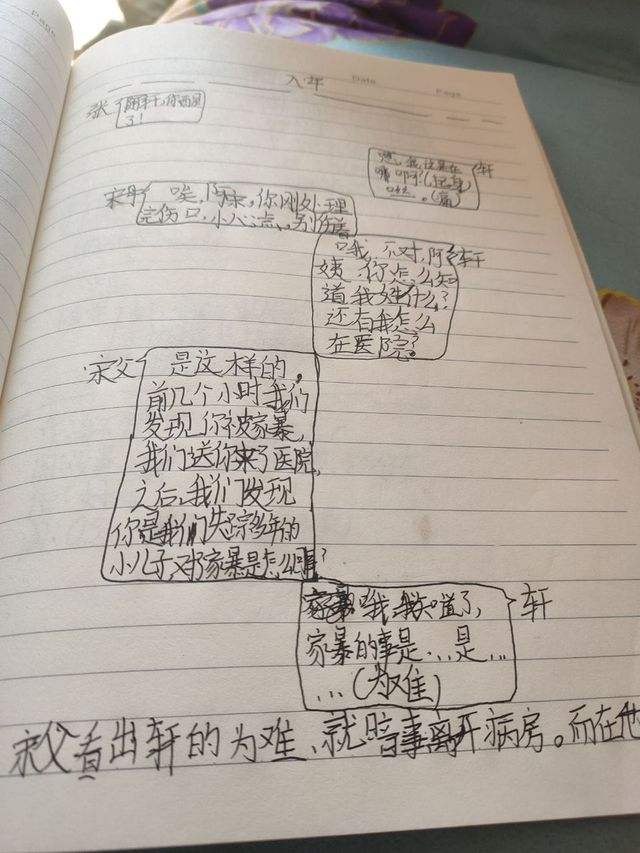 Date
Page
张
轩,你醒
了!
嗯,我这是在
哪啊?(起身
轩
宋母
唉,阿宋,你刚处理
完伤口,小心点,别伤着
哦,不对,阿
轩
姨 你怎么知
道我姓什么?
还有我怎么
在医院?
宋父
是这样的,
前几个小时我们
发现你被家暴,
我们送你来了医院,
之后,我们发现
你是我们失踪多年的
小儿子,对家暴是怎么回事?
哦我,我知道了,
轩
家暴的事是...是...
...(为难)
宋父看出轩的为难、就暗事离开病房。而在他